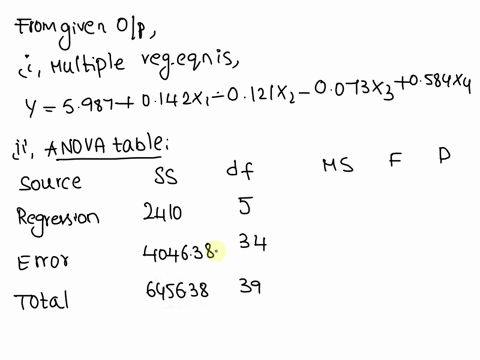 From given O/p,
i, Multiple reg.eqn is,
Y = 5.987 + 0.142X1 - 0.121X2 - 0.073X3 + 0.584X4
ii, ANOVA table:
Source SS df MS F P
Regression 2410 5
Error 4046.38 34
Total 645638 39